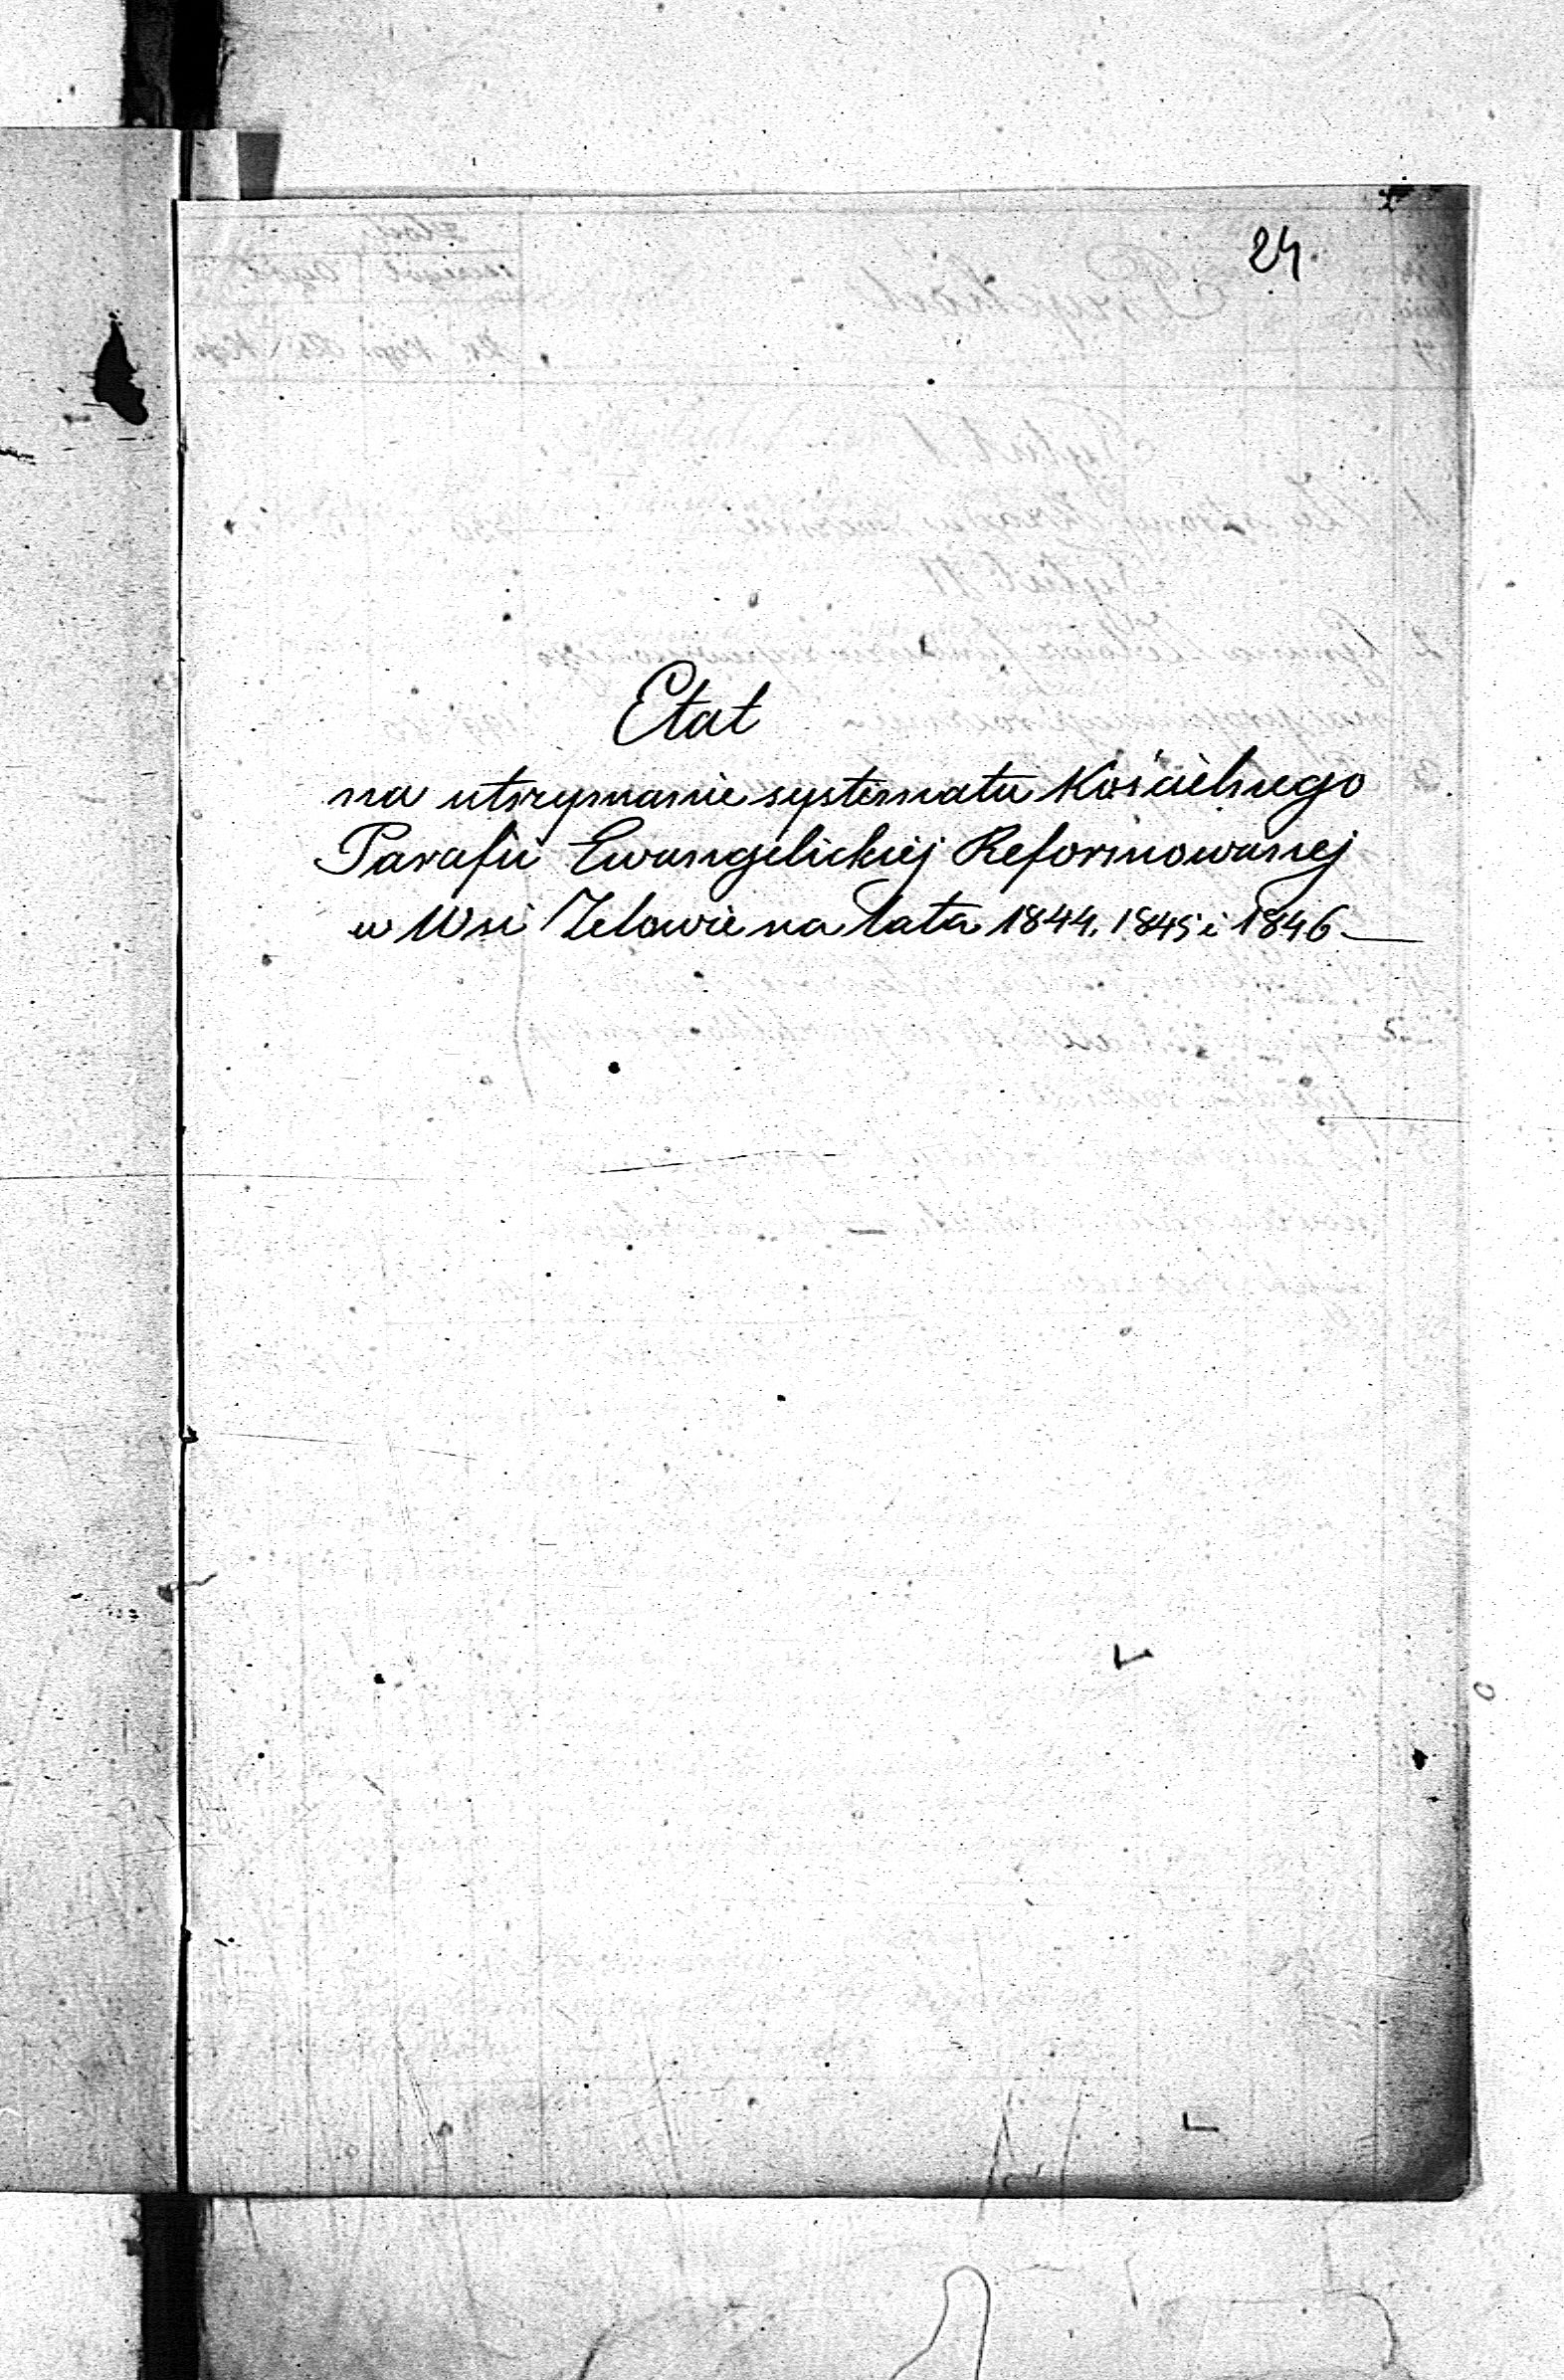 24
Etat
na utrzymanie systematu Kościelnego
Parafii Ewangelickiéj Reformowanej
w Wsi Zelowie na lata 1844. 1845 i 1846